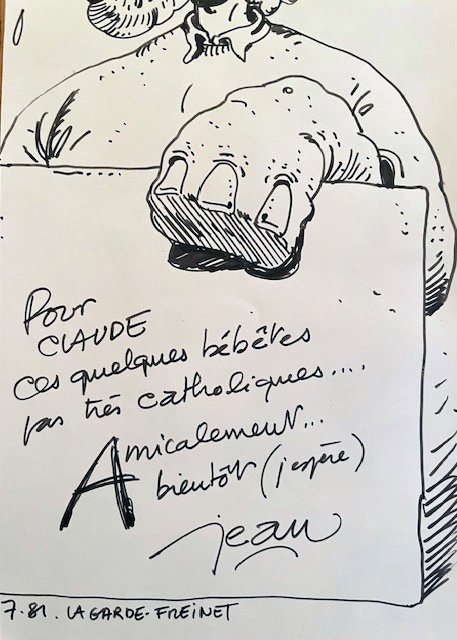 Pour
CLAUDE
ces quelques bébêtes
pas très catholiques....
Amicalement...
bientôt (j'espère)
jean
7.81. LA GARDE-FREINET